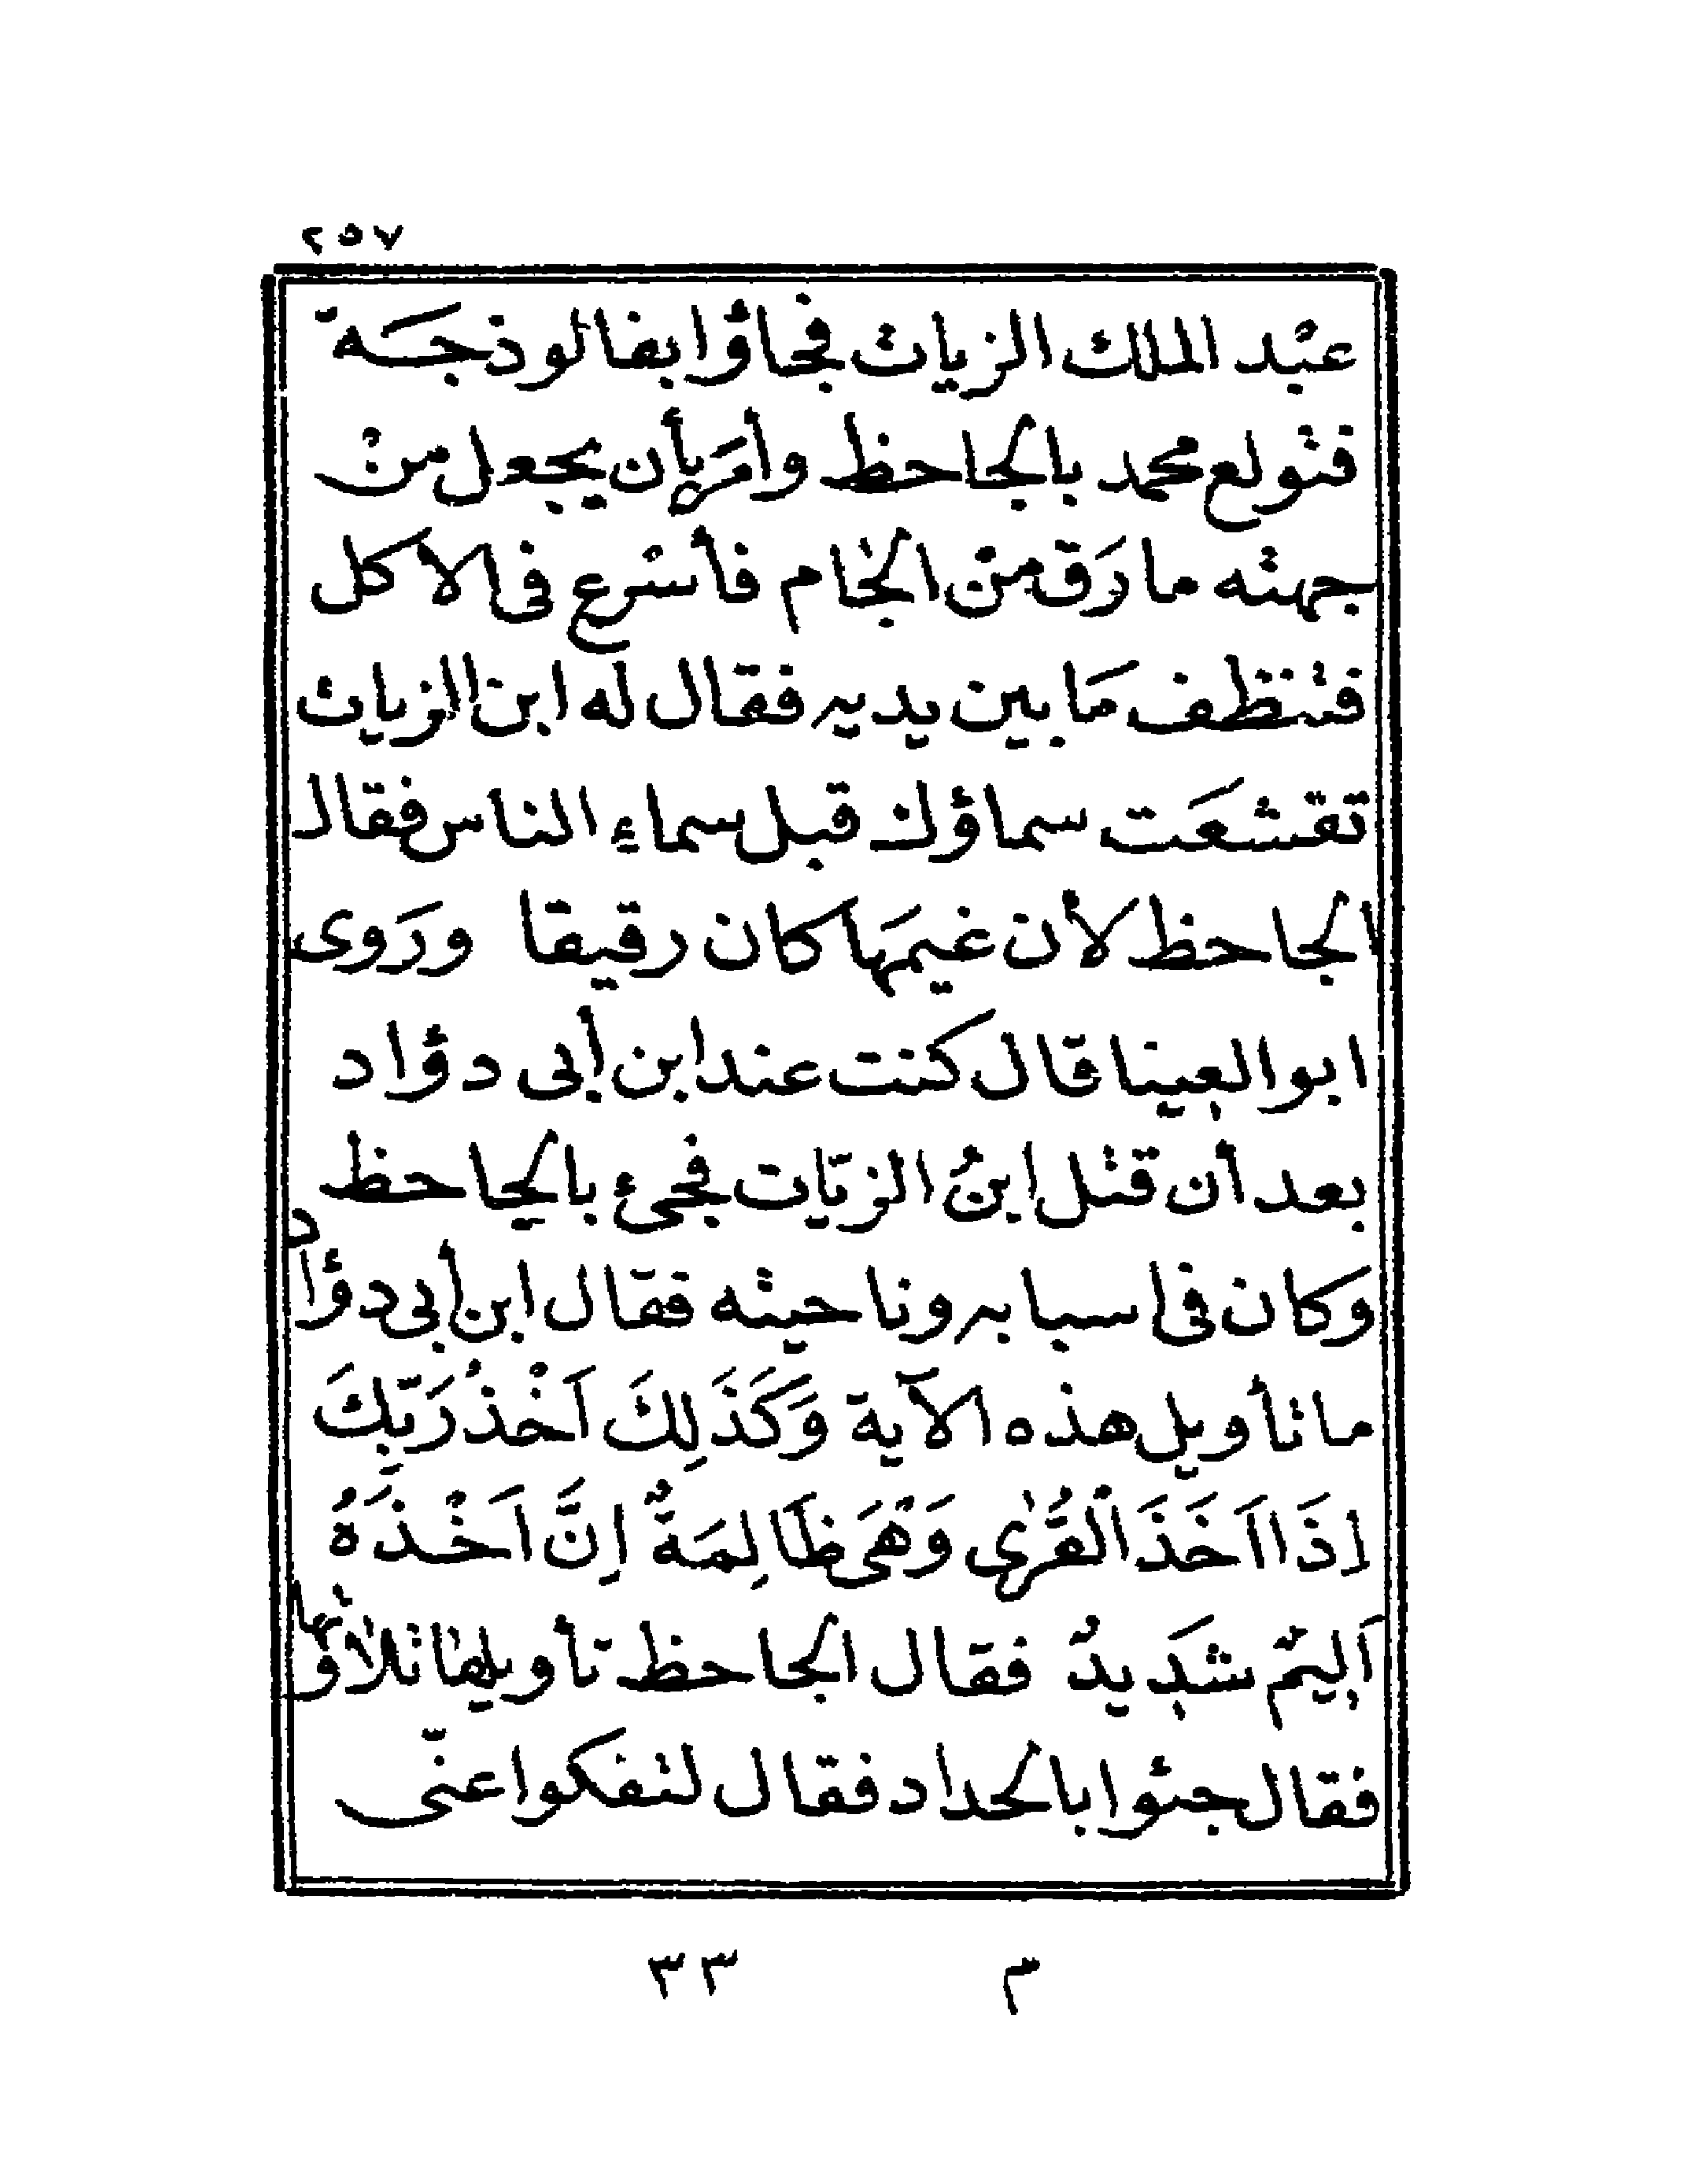 ٢٥٧
عبد الملك الزيات فجاؤا بفالوذجة
فتولع محمد بالجاحظ وأمر بأن يجعل من
جهته مارق من الجام فأسرع فى الاكل
فتنظف مَا بين يديه فقال له ابن الزيات
تقشعَت سماؤك قبل سماء الناس فقال
الجاحظ لأن غيمَها كان رقيقا ورَوى
ابو العينا قال كنت عند ابن أبى دؤاد
بعد أن قتل ابنُ الزيّات فجئ بالجاحظ
وكان فى اسبابه وناحيته فقال ابن أبى دؤاد
ما تأويل هذه الآية وَكَذَلِكَ اَخْذُ رَبِّكَ
اِذَا اَخَذَ الْقُرٰى وَهْىَ ظَالِمَةٌ اِنَّ اَخْذَهُ
اَلِيمٌ شَدِيدٌ فقال الجاحظ تأويلها تلاوتها
فقال جئوا بالحداد فقال لتفكوا عنّى
م ٣٣